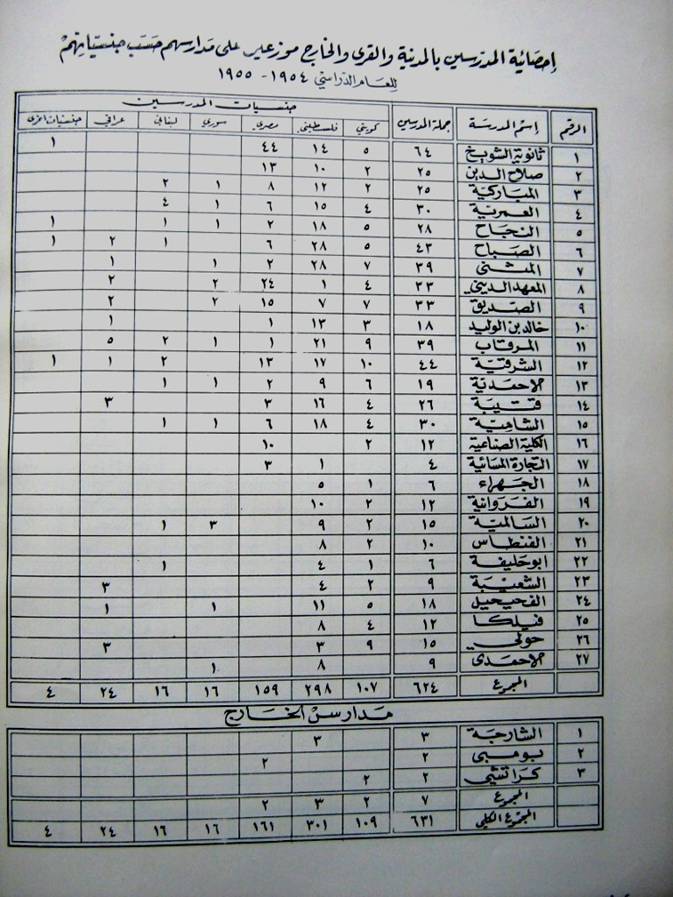 إحصائية المدرسين بالمدينة والقرى والخارج موزعين على مدارسهم حسب جنسياتهم
للعام الدراسي ١٩٥٤ - ١٩٥٥
جنسيات المدرسين
الرقم اسم المدرسة جملة المدرسين كويتي فلسطيني مصري سوري لبناني عراقي جنسيات أخرى
١ ثانوية الشويخ ٦٤ ٥ ١٤ ٤٤ ١
٢ صلاح الدين ٢٥ ٢ ١٠ ١٣
٣ المباركية ٢٥ ٢ ١٢ ٨ ١ ٢
٤ العمرية ٣٠ ٤ ١٥ ٦ ١ ٤
٥ النجاح ٢٨ ٥ ١٨ ٢ ١ ١ ١
٦ الصباح ٤٣ ٥ ٢٨ ٦ ١ ٢ ١
٧ المثنى ٣٩ ٧ ٢٨ ٢ ١ ١
٨ المعهد الديني ٣٣ ٤ ١ ٢٤ ٢ ٢
٩ الصديق ٣٣ ٧ ٧ ١٥ ٢ ٢
١٠ خالد بن الوليد ١٨ ٣ ١٣ ١ ١
١١ المرقاب ٣٩ ٩ ٢١ ١ ١ ٢ ٥
١٢ الشرقية ٤٤ ١٠ ١٧ ١٣ ٢ ١ ١
١٣ الأحمدية ١٩ ٦ ٩ ٢ ١ ١
١٤ قتيبة ٢٦ ٤ ١٦ ٣ ٣
١٥ الشامية ٣٠ ٤ ١٨ ٦ ١ ١
١٦ الكلية الصناعية ١٢ ٢ ١٠
١٧ التجارة المسائية ٤ ١ ٣
١٨ الجهراء ٦ ١ ٥
١٩ الفروانية ١٢ ٢ ١٠
٢٠ السالمية ١٥ ٢ ٩ ٣ ١
٢١ الفنطاس ١٠ ٢ ٨
٢٢ ابوحليفة ٦ ١ ٤ ١
٢٣ الشعيبة ٩ ٢ ٤ ٣
٢٤ الفحيحيل ١٨ ٥ ١١ ١ ١
٢٥ فيلكا ١٢ ٤ ٨
٢٦ حولي ١٥ ٩ ٣ ٣
٢٧ الأحمدى ٩ ٨ ١
المجموع ٦٢٤ ١٠٧ ٢٩٨ ١٥٩ ١٦ ١٦ ٢٤ ٤
مدارس الخارج
١ الشارجة ٣ ٣
٢ بومبى ٢ ٢
٣ كراتشي ٢ ٢
المجموع ٧ ٢ ٣ ٢
المجموع الكلي ٦٣١ ١٠٩ ٣٠١ ١٦١ ١٦ ١٦ ٢٤ ٤